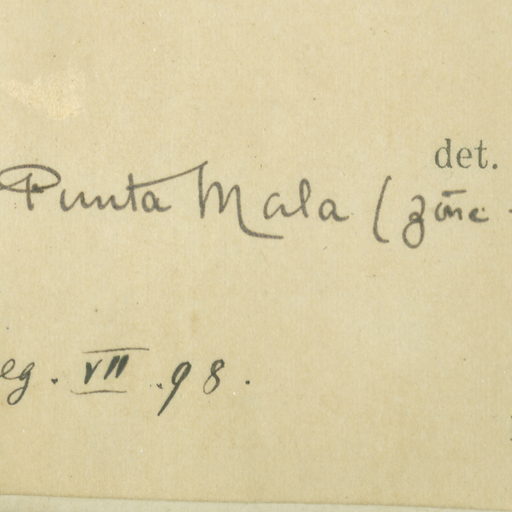 det.
Punta Mala (
eg. VII .98.